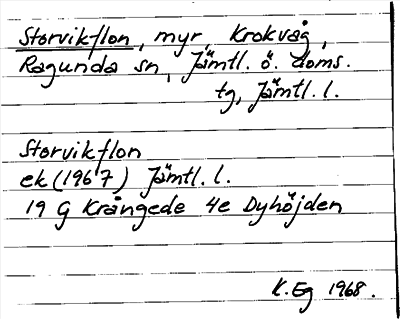 Storvikflon, myr, Krokvåg,
Ragunda sn, Jämtl. ö. doms.
tg, Jämtl. l.
Storvikflon
ek (1967) Jämtl. l.
19 G Krångede 4e Dyhöjden
K. Eg 1968.